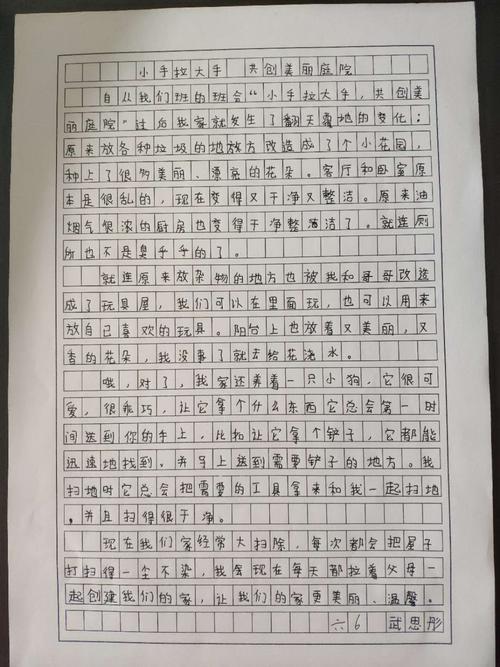 小手拉大手 共创美丽庭院
自从我们班的班会“小手拉大手，共创美
丽庭院”过后我家就发生了翻天覆地的变化；
原来放各种垃圾的地放方改造成了个小花园，
种上了很多美丽、漂亮的花朵。客厅和卧室原
本是很乱的，现在变得又干净又整洁。原来油
烟气很浓的厨房也变得干净整洁了。就连厕
所也不是臭乎乎的了。
就连原来放杂物的地方也被我和哥哥改造
成了玩具屋，我们可以在里面玩，也可以用来
放自己喜欢的玩具。阳台上也放着又美丽，又
香的花朵，我没事了就去给花浇水。
哦，对了，我家还养着一只小狗，它很可
爱，很乖巧，让它拿个什么东西它总会第一时
间送到你的手上，比如让它拿个铲子，它都能
迅速地找到，并马上送到需要铲子的地方。我
扫地时它总会把需要的工具拿来和我一起扫地
，并且扫得很干净。
现在我们家经常大扫除，每次都会把屋子
打扫得一尘不染，我会现在每天都拉着父母一
起创建我们的家，让我们的家更美丽、温馨。
六6 武思彤